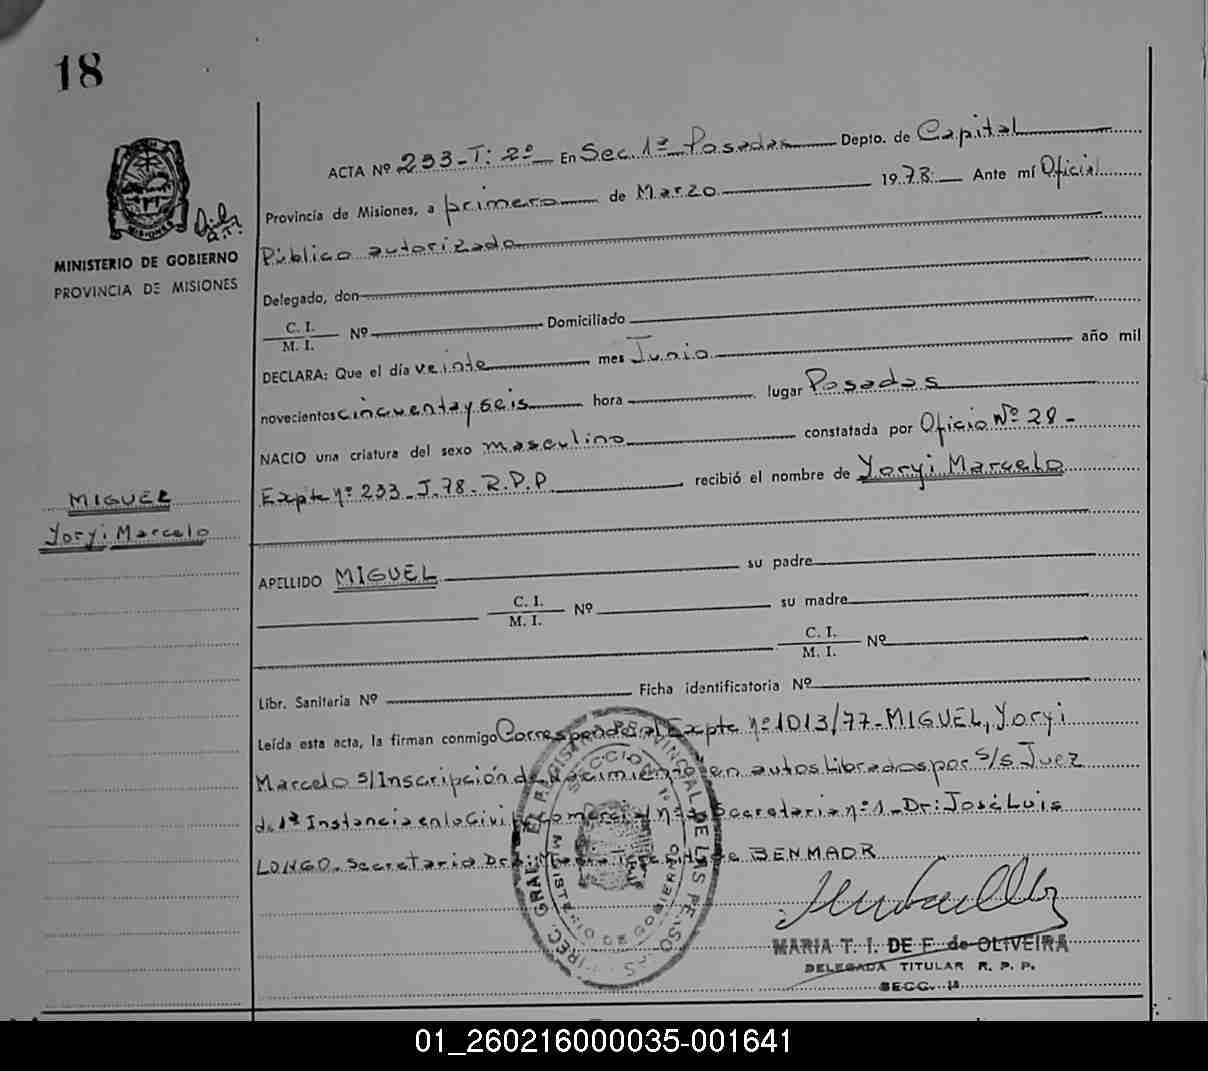 18
ACTA Nº 233-T: 2º En Sec. 1ª Posadas Depto. de Capital
Provincia de Misiones, a primero de Marzo 1978. Ante mí Oficial
Público autorizado
MISIONES
MINISTERIO DE GOBIERNO
PROVINCIA DE MISIONES
Delegado, don
C. I.
M. I. Nº Domiciliado
DECLARA: Que el día veinte mes Junio año mil
novecientos cincuenta y seis hora lugar Posadas
NACIO una criatura del sexo masculino constatada por Oficio Nº 28-
Expte nº 233-J.78-R.P.P recibió el nombre de Yoryi Marcelo
MIGUEL
Yoryi Marcelo
APELLIDO MIGUEL su padre
C. I.
M. I. Nº su madre
C. I.
M. I. Nº
Libr. Sanitaria Nº Ficha identificatoria Nº
Leída esta acta, la firman conmigo Corresponde al Expte nº 1013/77-MIGUEL, Yoryi
Marcelo s/Inscripción de Nacimiento en autos Librados por S/S Juez
de 1ª Instancia en lo Civil y comercial nº Secretaria nº 1-Dr: José Luis
LONGO. Secretaria de BENMAOR
MARIA T. I. DE F. de OLIVEIRA
DELEGADA TITULAR R. P. P.
SECC. 1ª
DIREC. GRAL. DEL REGISTRO PROVINCIAL DE LAS PERSONAS
SECCION 1ª
MINISTERIO DE GOBIERNO
01_260216000035-001641